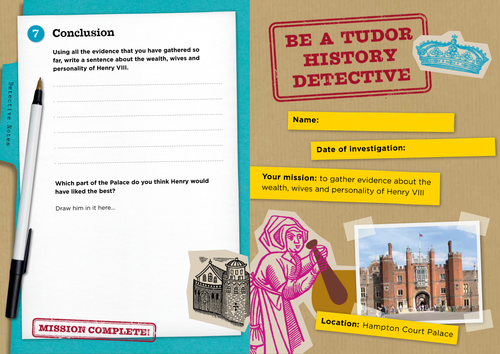 7 Conclusion
Using all the evidence that you have gathered so
far, write a sentence about the wealth, wives and
personality of Henry VIII.
Which part of the Palace do you think Henry would
have liked the best?
Draw him in it here...
MISSION COMPLETE!
Detective Notes
BE A TUDOR
HISTORY
DETECTIVE
Name:
Date of investigation:
Your mission: to gather evidence about the
wealth, wives and personality of Henry VIII
Location: Hampton Court Palace